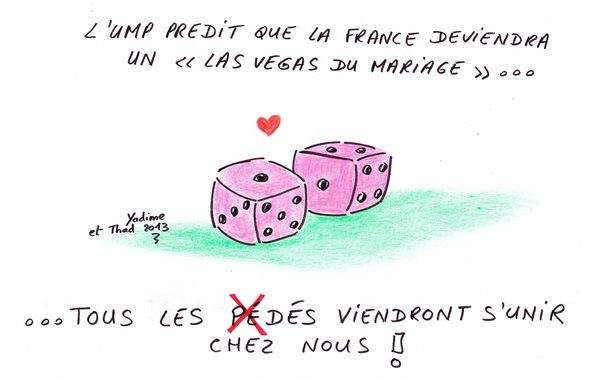 L'UMP PREDIT QUE LA FRANCE DEVIENDRA
UN « LAS VEGAS DU MARIAGE » ...
Yadime
et Thad 2013
...TOUS LES PÉDÉS VIENDRONT S'UNIR
CHEZ NOUS !